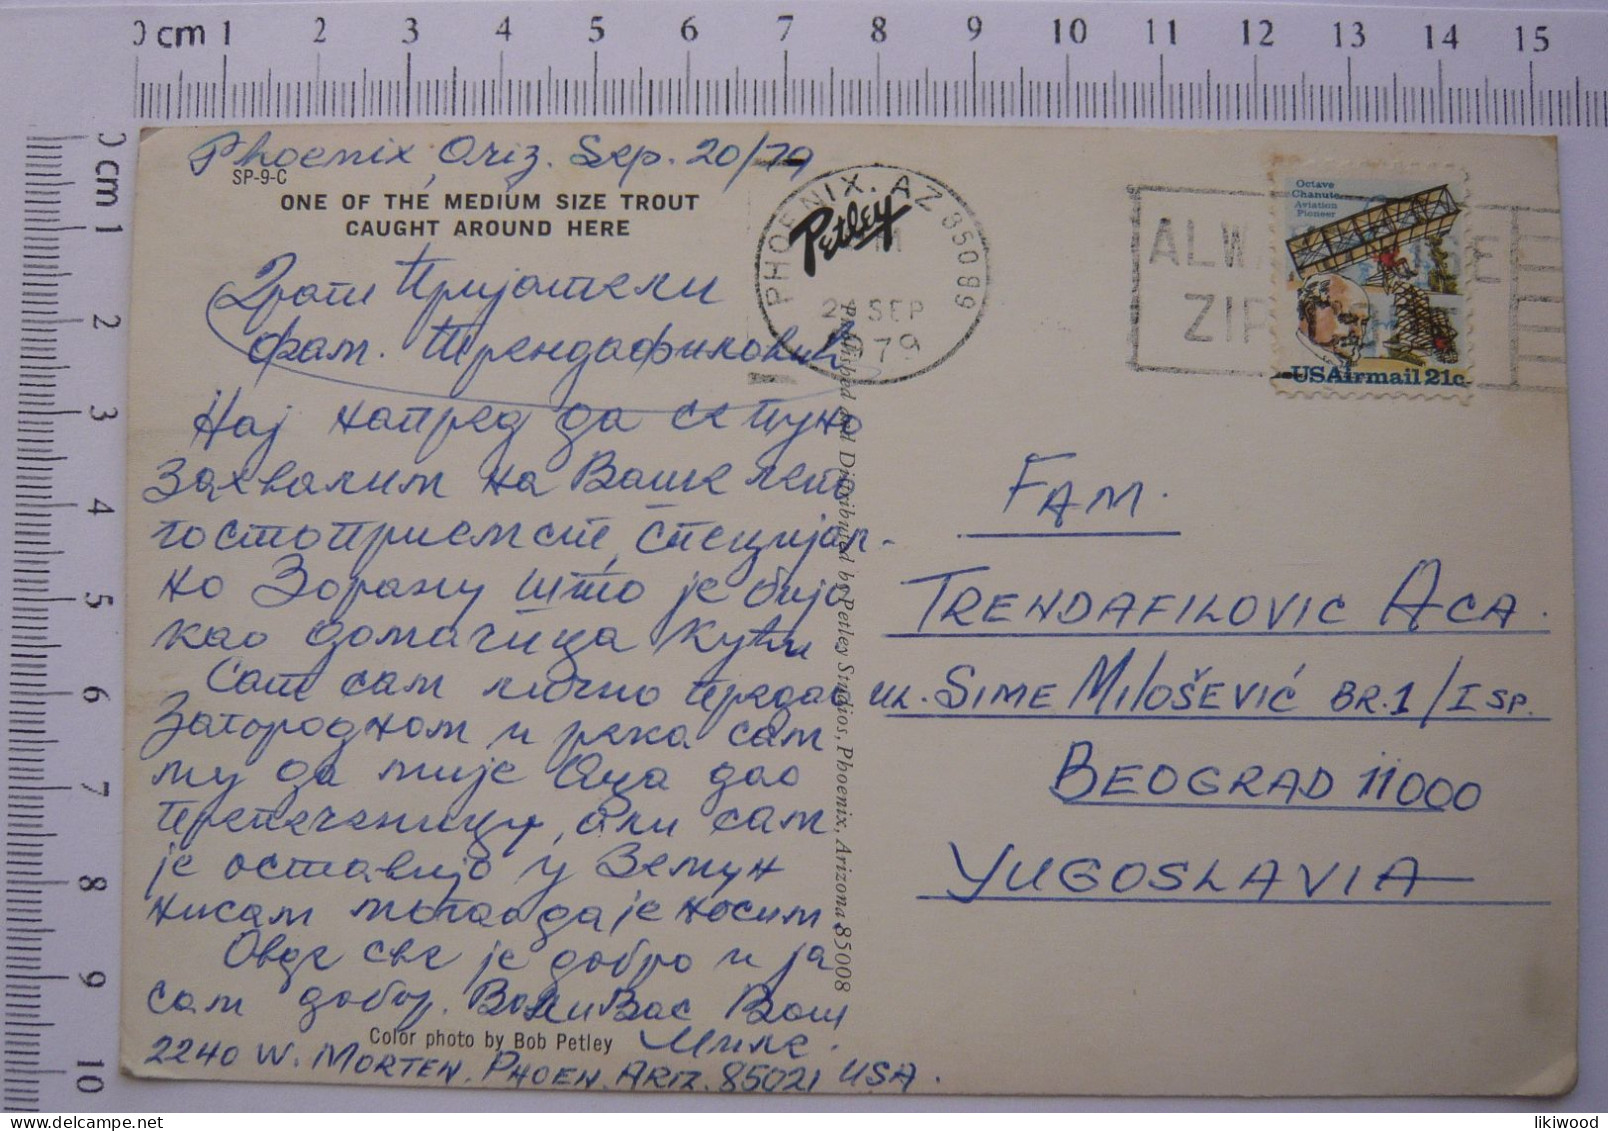 0 cm 1 2 3 4 5 6 7 8 9 10 11 12 13 14 15
0 cm 1 2 3 4 5 6 7 8 9 10
Phoenix, Ariz. Sep. 20/79
SP-9-C
ONE OF THE MEDIUM SIZE TROUT
CAUGHT AROUND HERE
Драги Пријатељи
фам. Трендафиловић
Нај напред да се пуно
захвалим на Ваше лепо
гостопримст, специјал-
но Зорану што је био
као домаћица кући
Сат сам лично предао
Загородном и река сам
му да није Аца дао
препеченицу, али сам
је оставио у Земун
нисам могао да је носим,
Овде све је добро и ја
сам добор. Воли Вас Ваш
Миле.
Color photo by Bob Petley
2240 W. MORTEN. PHOEN. ARIZ. 85021 USA.
Petley
Published and Distributed by Petley Studios, Phoenix, Arizona 85008
PHOENIX, AZ 35089
SEP
1979
ALWAYS USE
ZIP
Octave
Chanute
Aviation
Pioneer
USAirmail 21c
FAM.
TRENDAFILOVIC ACA.
UL. SIME MILOŠEVIĆ BR.1/I SP.
BEOGRAD 11000
YUGOSLAVIA
likiwood